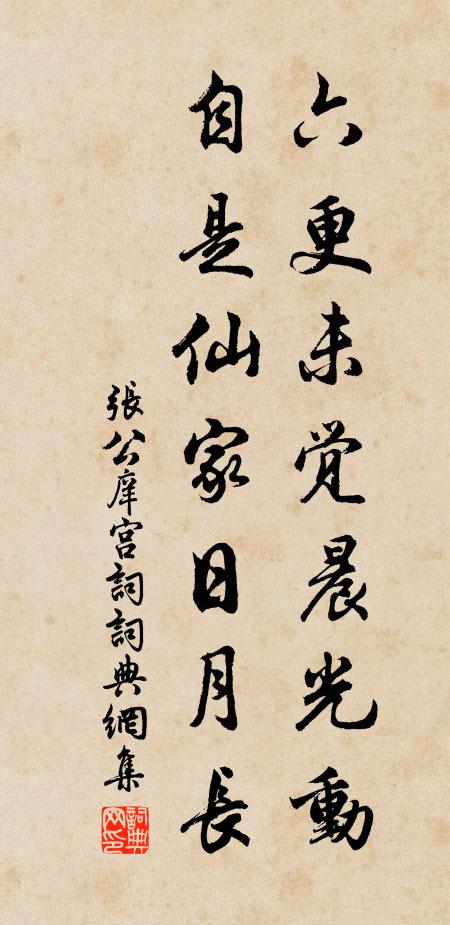 六更未觉晨光動
自是仙家日月長
張公庠宫詞詞典網集
詞典网印